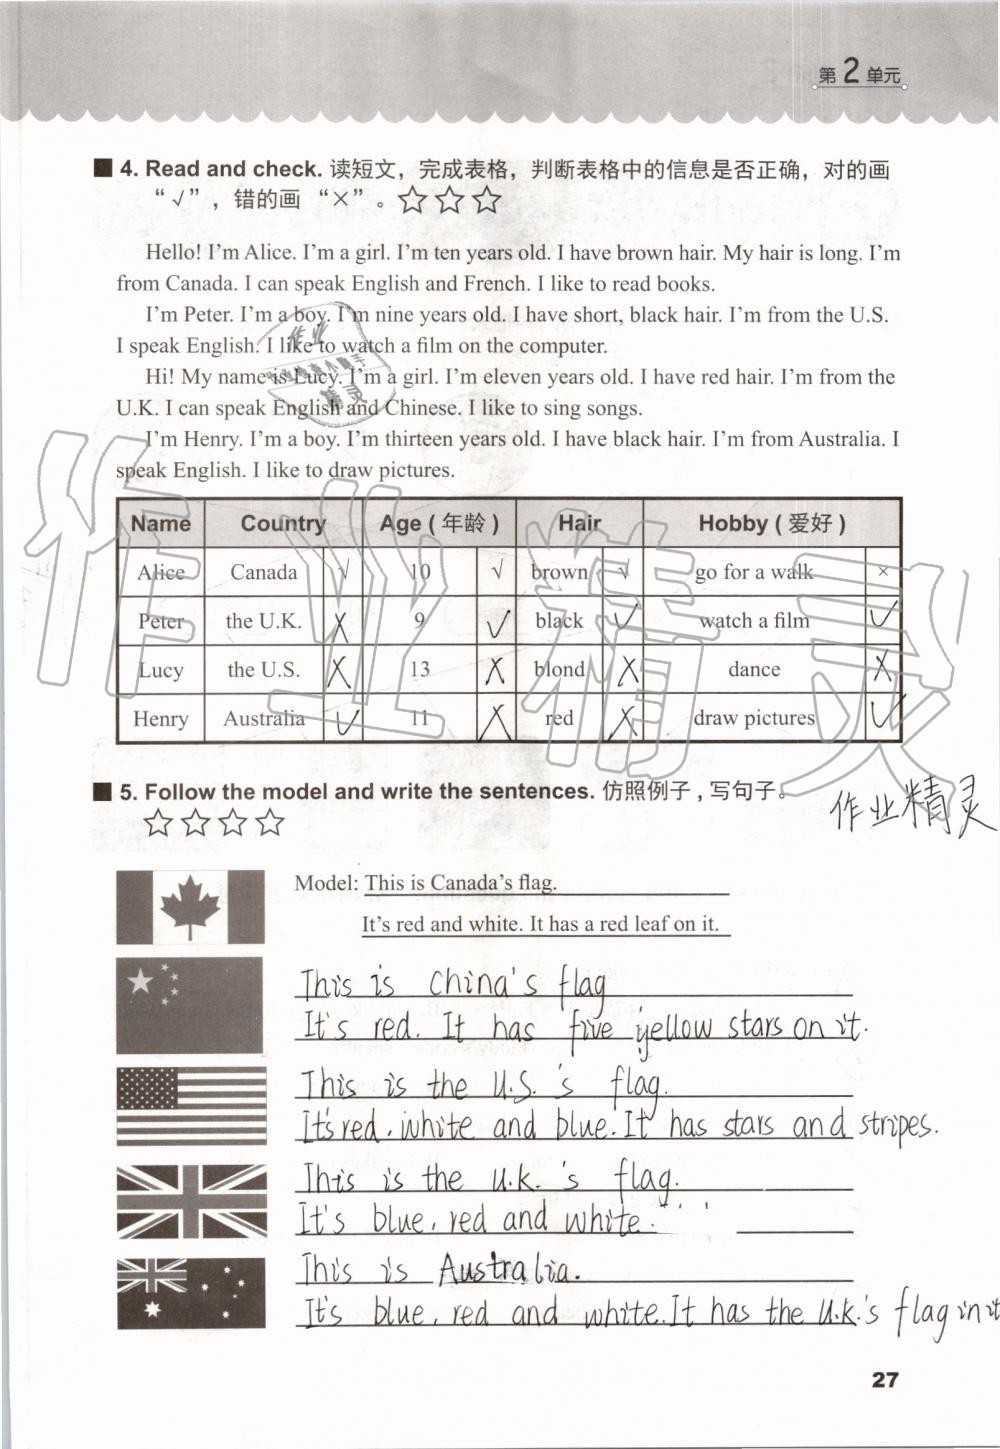 第2单元
4. Read and check. 读短文，完成表格，判断表格中的信息是否正确，对的画
“√”，错的画“×”。☆☆☆
Hello! I'm Alice. I'm a girl. I'm ten years old. I have brown hair. My hair is long. I'm
from Canada. I can speak English and French. I like to read books.
I'm Peter. I'm a boy. I'm nine years old. I have short, black hair. I'm from the U.S.
I speak English. I like to watch a film on the computer.
Hi! My name is Lucy. I'm a girl. I'm eleven years old. I have red hair. I'm from the
U.K. I can speak English and Chinese. I like to sing songs.
I'm Henry. I'm a boy. I'm thirteen years old. I have black hair. I'm from Australia. I
speak English. I like to draw pictures.
作业
精灵
作业精灵
Name Country Age ( 年龄 ) Hair Hobby ( 爱好 )
Alice Canada √ 10 √ brown √ go for a walk ×
Peter the U.K. × 9 √ black √ watch a film √
Lucy the U.S. × 13 × blond × dance ×
Henry Australia √ 11 × red × draw pictures √
5. Follow the model and write the sentences. 仿照例子，写句子。
☆☆☆☆
作业精灵
Model: This is Canada's flag.
It's red and white. It has a red leaf on it.
This is China's flag
It's red. It has five yellow stars on it.
This is the U.S.'s flag.
It's red, white and blue. It has stars and stripes.
This is the U.K.'s flag.
It's blue, red and white.
This is Australia.
It's blue, red and white. It has the U.K.'s flag in it
27